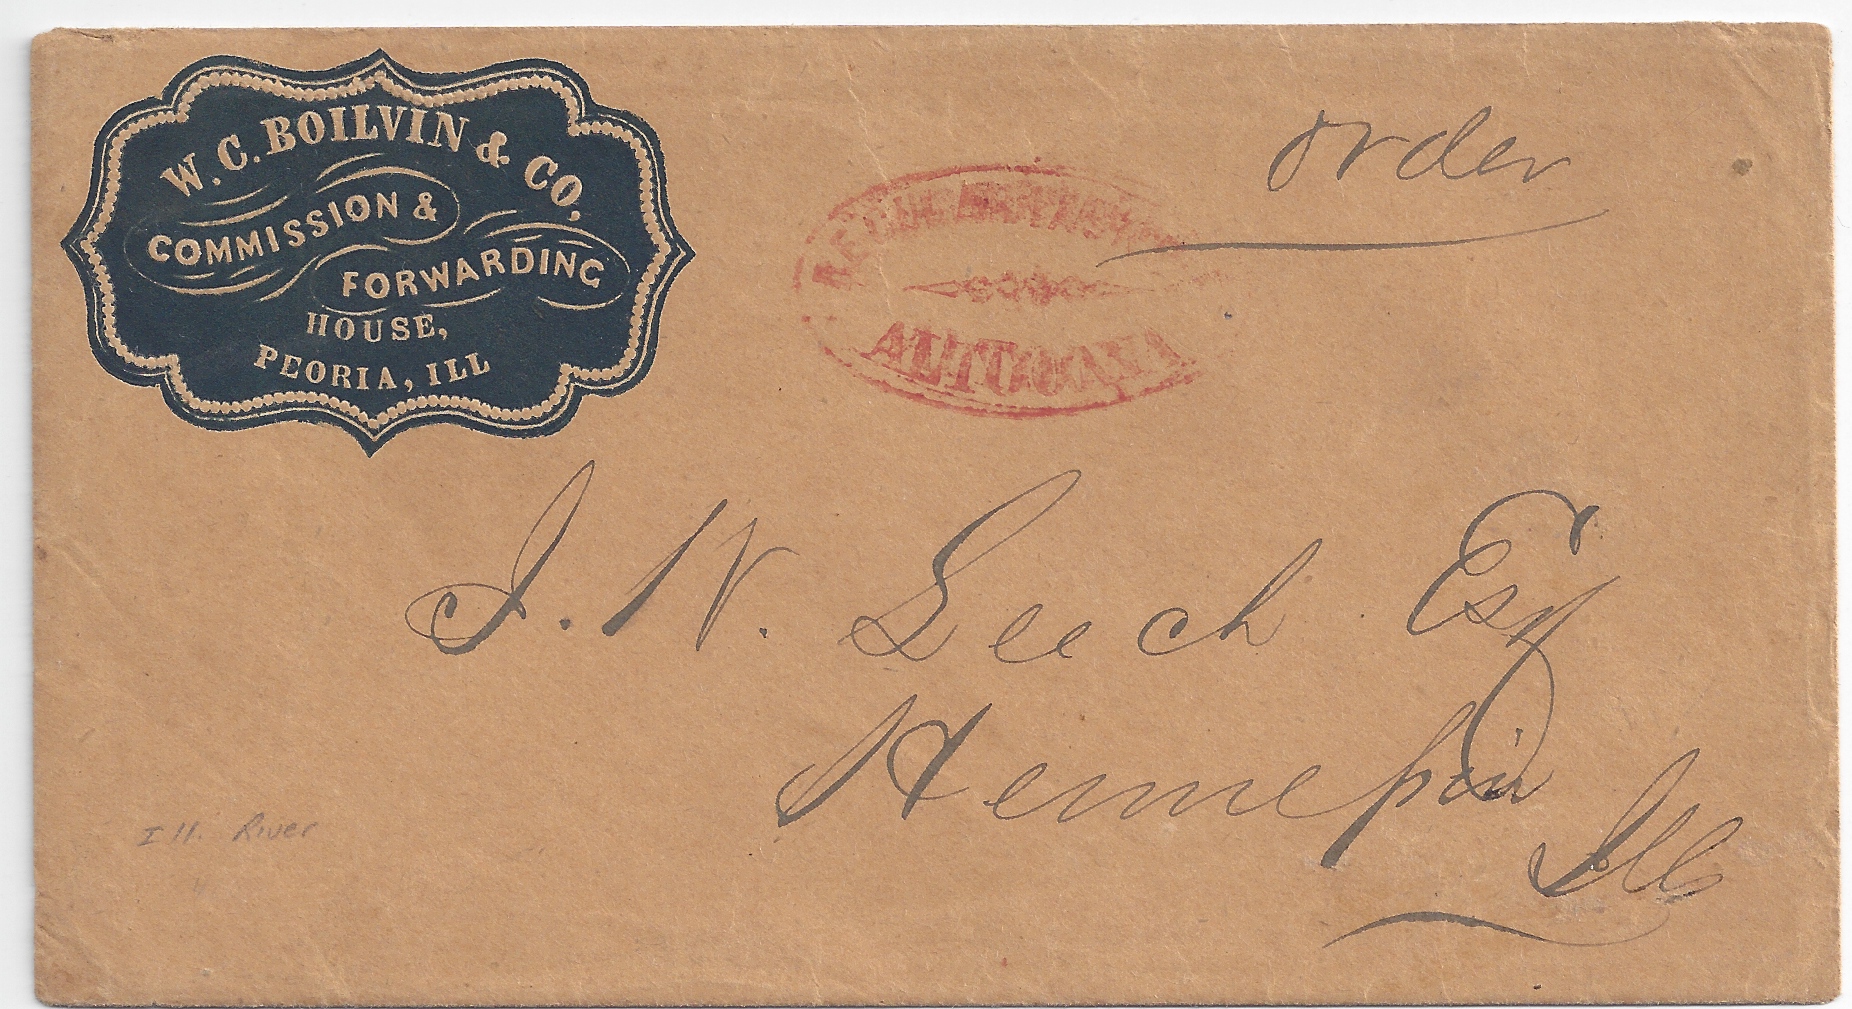 W. C. BOILVIN & CO,
COMMISSION &
FORWARDING
HOUSE,
PEORIA, ILL
order
REGULAR PACKET
ALTOONA
J. N. Leech Esq
Hennepin
Ills
Ill. River